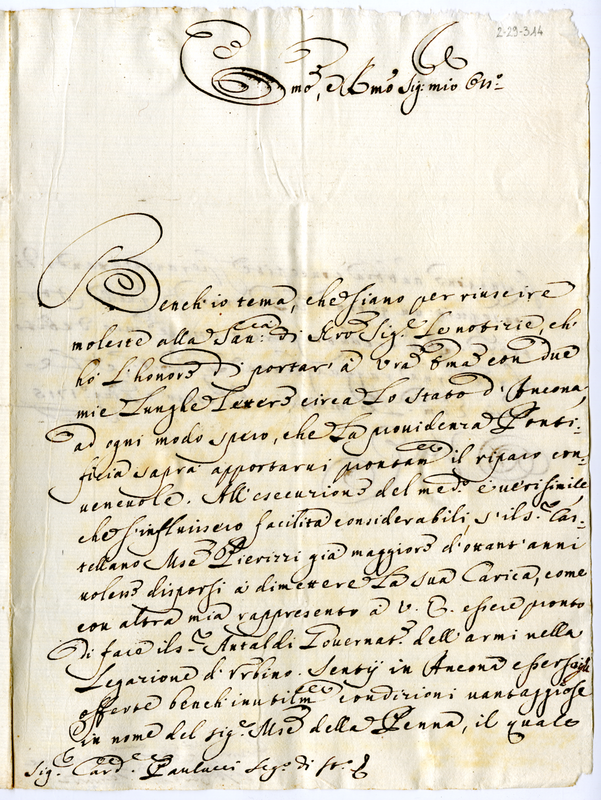 2-29-314
Em̃o, e Rm̃o Sig: mio Oss.o
Bench'io tema, che siano per riuscire
moleste alla San.ca di Nro Sig.e Le notizie, ch'
hò L'honore di portar' à Vra Em̃a con due
mie Lunghe Lettere circa Lo stato d'Ancona,
ad ogni modo spero, che La providenza Ponti-
ficia saprà apportarvi prontam.te il riparo con-
venevole. All'esecuzione del med.o è verisimile
che s'influissero facilità considerabili, s'il S.r Cas-
tellano Mse Pierizzi già maggiore d'ottant'anni
volesse disporsi à dimettere La sua Carica, come
con altra mia rappresento à V. E. essere pronto
di fare il S.r Antaldi Governat.e dell'armi nella
Legazione d'Urbino. Sentij in Ancona essersigli
offerte bench'inutilm.te condizioni vantaggiose
in nome del sig.r Mse della Penna, il quale
Sig.r Card.e Paulucci Seg.o di St.o